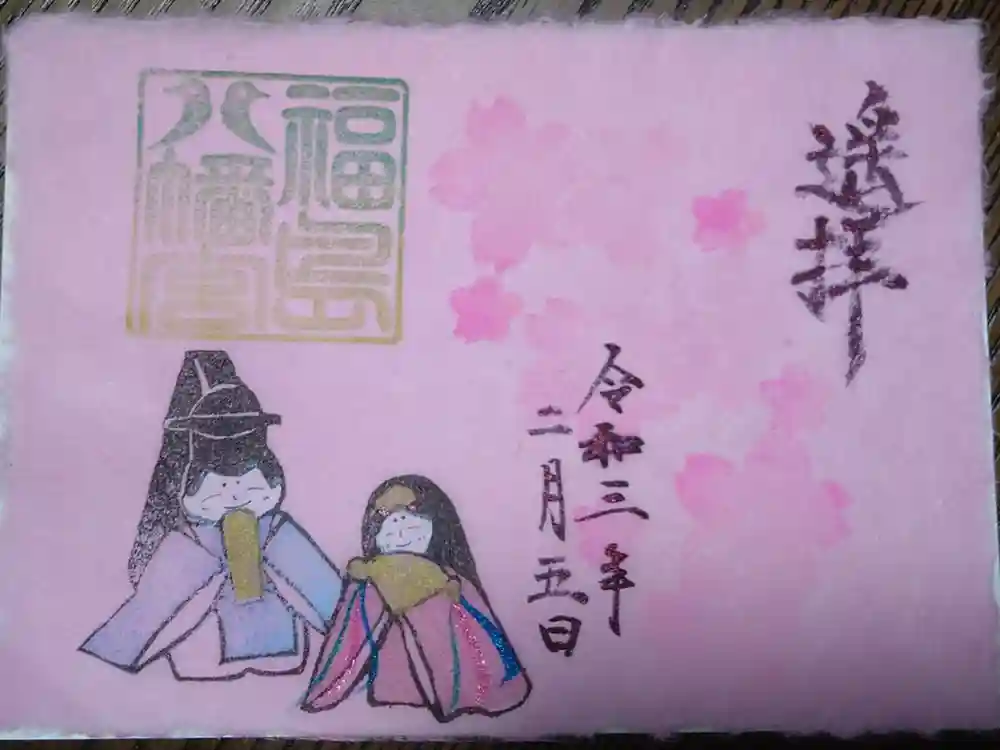 遥拝
令和三年
二月五日
福島
八幡宮